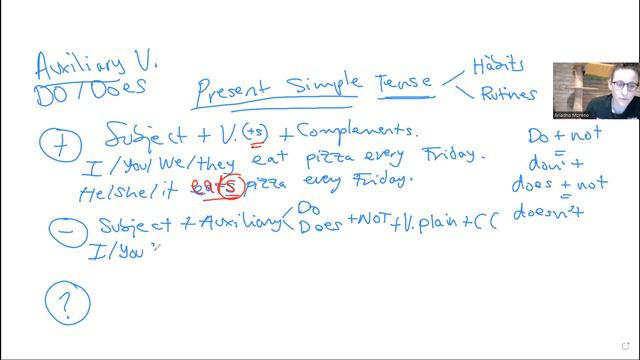 Auxiliary V.
DO/Does
Present Simple Tense
Habits
Rutines
+ Subject + V. (+s) + Complements.
I/you/we/they eat pizza every Friday.
He/she/it eats pizza every Friday.
- Subject + Auxiliary Do
Does +NOT +V. plain + CC
I/you
?
Do + not
don't
does + not
doesn't
Ariadna Moreno